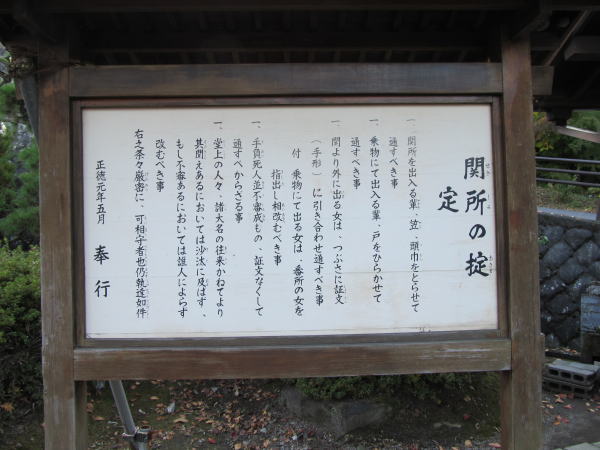 関所の掟
定
一、関所を出入る輩、笠、頭巾をとらせて
通すべき事
一、乗物にて出入る輩、戸をひらかせて
通すべき事
一、関より外に出る女は、つぶさに証文
(手形)に引き合わせ通すべき事
付 乗物にて出る女は、番所の女を
指出し相改むべき事
一、手負死人並不審成もの、証文なくして
通すべからざる事
一、堂上の人々、諸大名の往来かねてより
其聞えあるにおいては沙汰に及ばず、
もし不審あるにおいては誰人によらず
改むべき事
右之条々厳密に、可相守者也仍執達如件
正徳元年五月 奉行